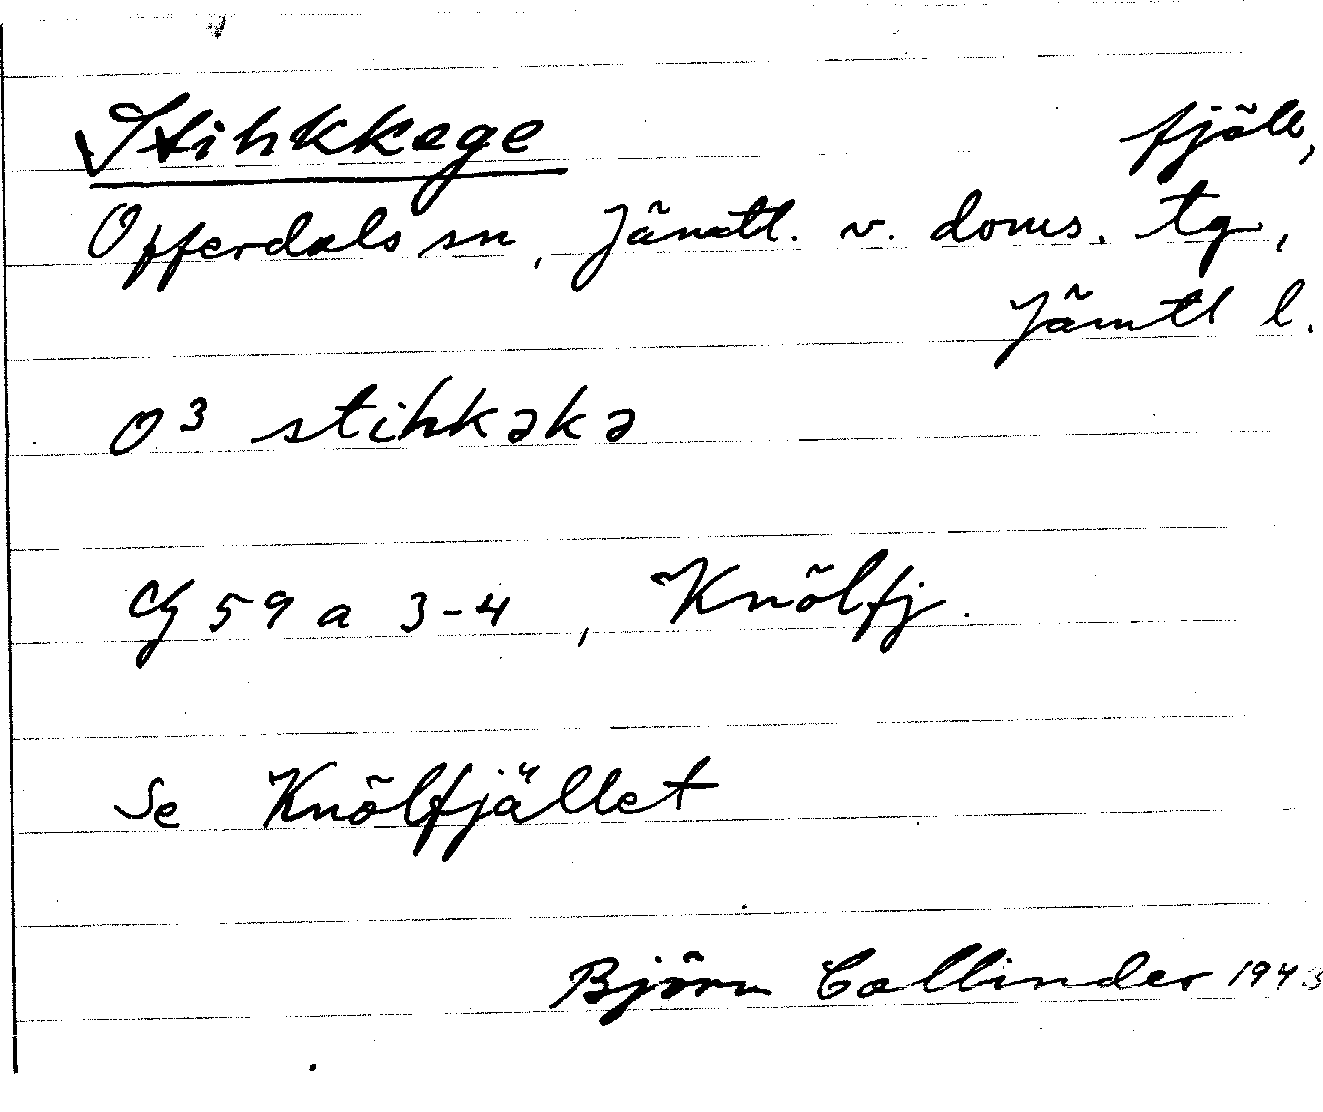 Stihkkege fjäll,
Offerdals sn, Jämtl. v. doms. tg,
Jämtl l.
O³ stihkəkə
Cf 59 a 3-4, Knölfj.
Se Knölfjället
Björn Collinder 1943